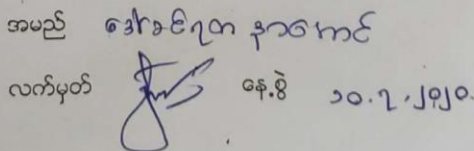 အမည် ဒေါ်ခင်ရတနာကောင်
လက်မှတ် နေ့စွဲ ၁၀.၇.၂၀၂၀